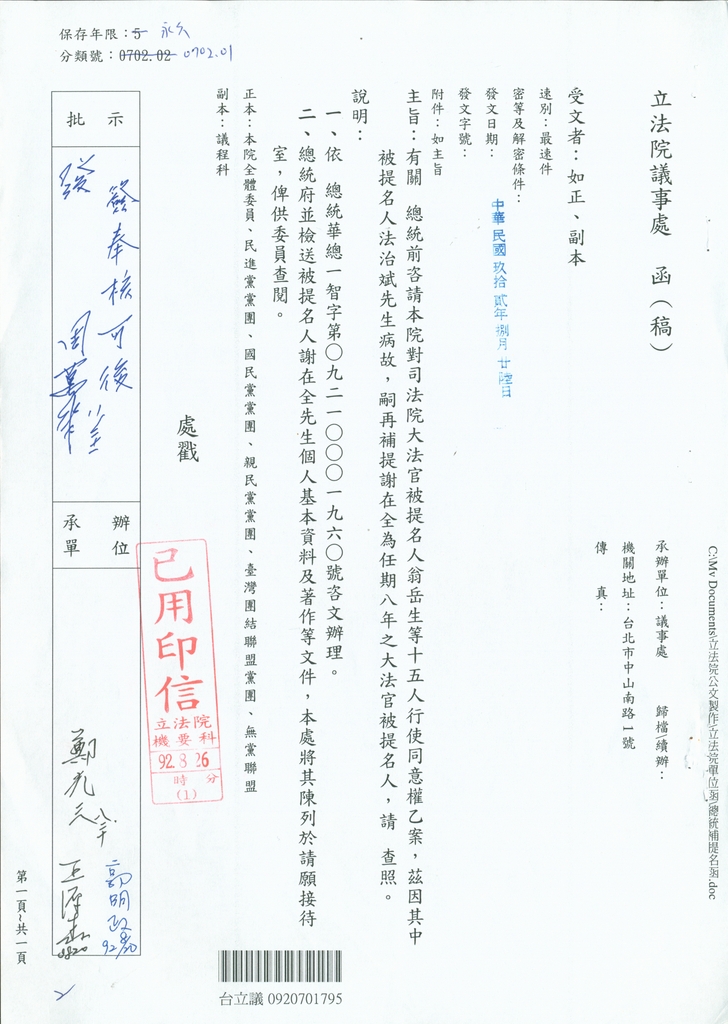 保存年限：5 永久
分類號：0702.02 0702.01
C:\My Documents\立法院公文製作\立法院單位函\總統補提名函.doc
立法院議事處　函（稿）
承辦單位：議事處　歸檔/續辦：
機關地址：台北市中山南路1號
傳　真：
受文者：如正、副本
速別：最速件
密等及解密條件：
發文日期：中華民國玖拾貳年捌月廿陸日
發文字號：
附件：如主旨
主旨：有關　總統前咨請本院對司法院大法官被提名人翁岳生等十五人行使同意權乙案，茲因其中
被提名人法治斌先生病故，嗣再補提謝在全為任期八年之大法官被提名人，請　查照。
說明：
一、依　總統華總一智字第○九二一○○○一九六○號咨文辦理。
二、總統府並檢送被提名人謝在全先生個人基本資料及著作等文件，本處將其陳列於請願接待
室，俾供委員查閱。
正本：本院全體委員、民進黨黨團、國民黨黨團、親民黨黨團、臺灣團結聯盟黨團、無黨聯盟
副本：議程科
處戳
已用印信
立法院
機要科
92.8.26
時　分
(1)
批示
簽奉核可後
發
周萬來
承辦
單位
高明政
鄭光三
第一頁~共一頁
台立議 0920701795